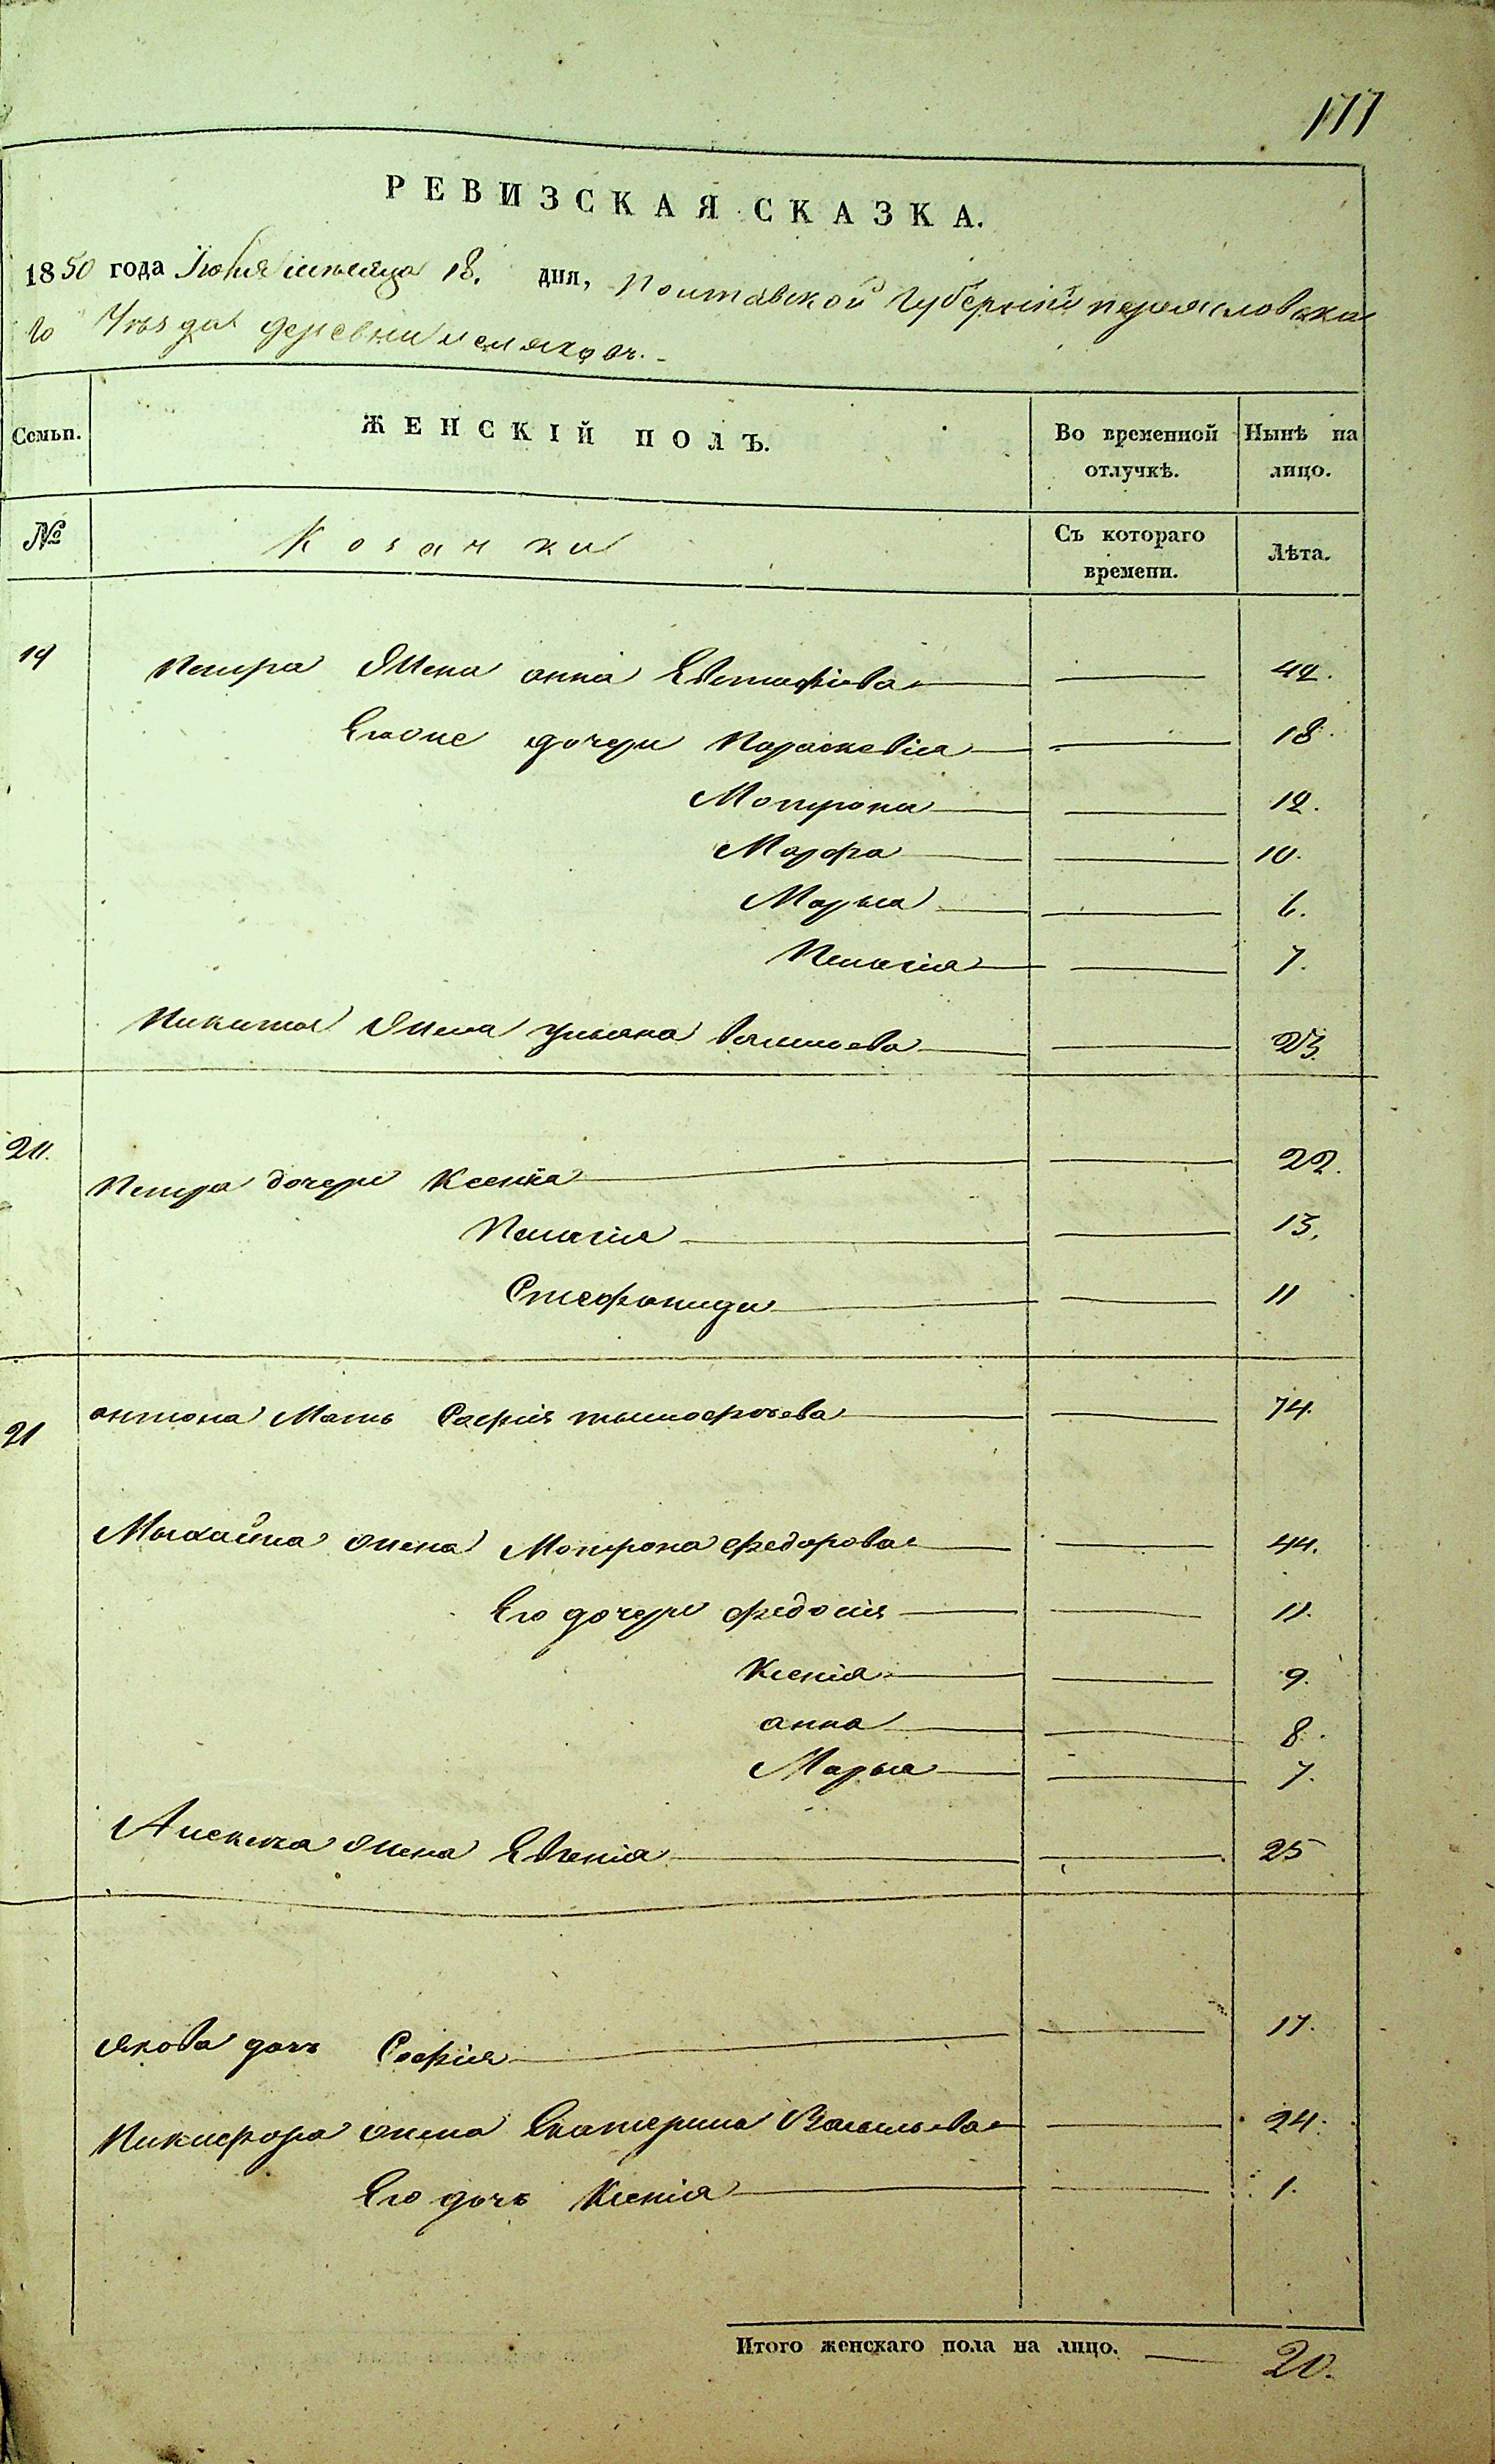 177
РЕВИЗСКАЯ СКАЗКА.
1850 года Іюня месяца 18. дня, Полтавской Губерніи переяславска
го Уѣзда деревни
Семьи. ЖЕНСКІЙ ПОЛЪ. Во временной отлучкѣ. Нынѣ на лицо.
№ Козачки Съ котораго времени. Лѣта.
19 Петра Жена анна Евстафіева 42.
дочери Параскевія 18.
Мотрона 12.
Марфа 10.
Марья 6.
Пелагія 7.
Никиты Жена ульяна 23.
20. Петра дочери Ксенія 22.
Пелагія 13.
Стефанида 11
21 антона Мать Софія тымофѣева 74.
Мыхайла жена Мотрона федорова 44.
Его дочери федосія 11.
Ксенія 9.
анна 8.
Марья 7.
Алексея жена Евгенія 25
якова дочь Софія 17.
Никифора жена Екатерина Васильева 24.
Его дочь Ксенія 1.
Итого женскаго пола на лицо. 20.